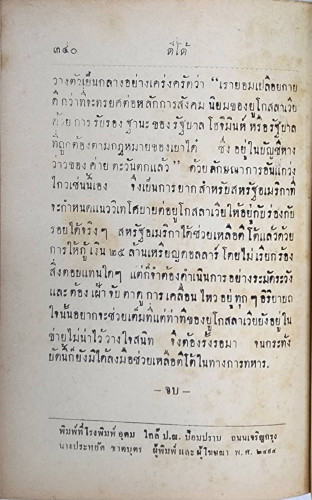 ๓๔๐
ติโต้
วางตัวเป็นกลางอย่างเคร่งครัดว่า “เรายอมเปลือยกาย
ดีกว่าที่จะทรยศต่อหลักการสังคมนิยมของยูโกสลาเวีย
ด้วยการรับรองฐานะของรัฐบาลโฮจิมินห์ หรือรัฐบาล
ที่ถูกต้องตามกฎหมายของเบาได๋ ซึ่งอยู่ในบัญชีหาง
ว่าวของค่ายตะวันตกแล้ว” ด้วยลักษณาการอันแกว่ง
ไกวเช่นนี้เอง จึงเป็นการยากสำหรับสหรัฐอเมริกาที่
จะกำหนดแนววิเทโศบายต่อยูโกสลาเวียให้อยู่กับร่องกับ
รอยได้จริงๆ สหรัฐอเมริกาได้ช่วยเหลือติโต้แล้วด้วย
การให้กู้เงิน ๒๕ ล้านเหรียญดอลลาร์ โดยไม่เรียกร้อง
สิ่งตอบแทนใดๆ แต่ก็จำต้องดำเนินการอย่างระมัดระวัง
และต้องเฝ้าจับตาดูการเคลื่อนไหวอยู่ทุกๆ อิริยาบถ
ใจนั้นอยากจะช่วยเต็มที่แต่ท่าทีของยูโกสลาเวียยังอยู่ใน
ข่ายไม่น่าไว้วางใจสนิท จึงต้องรั้งรอมา จนกระทั่ง
บัดนี้ก็ยังมิได้ลงมือช่วยเหลือติโต้ในทางการทหาร.
– จบ –
พิมพ์ที่โรงพิมพ์อุดม ใกล้ ป.ณ. ป้อมปราบ ถนนเจริญกรุง
นางประหยัด ชาตบุตร ผู้พิมพ์และผู้โฆษณา พ.ศ. ๒๔๙๔